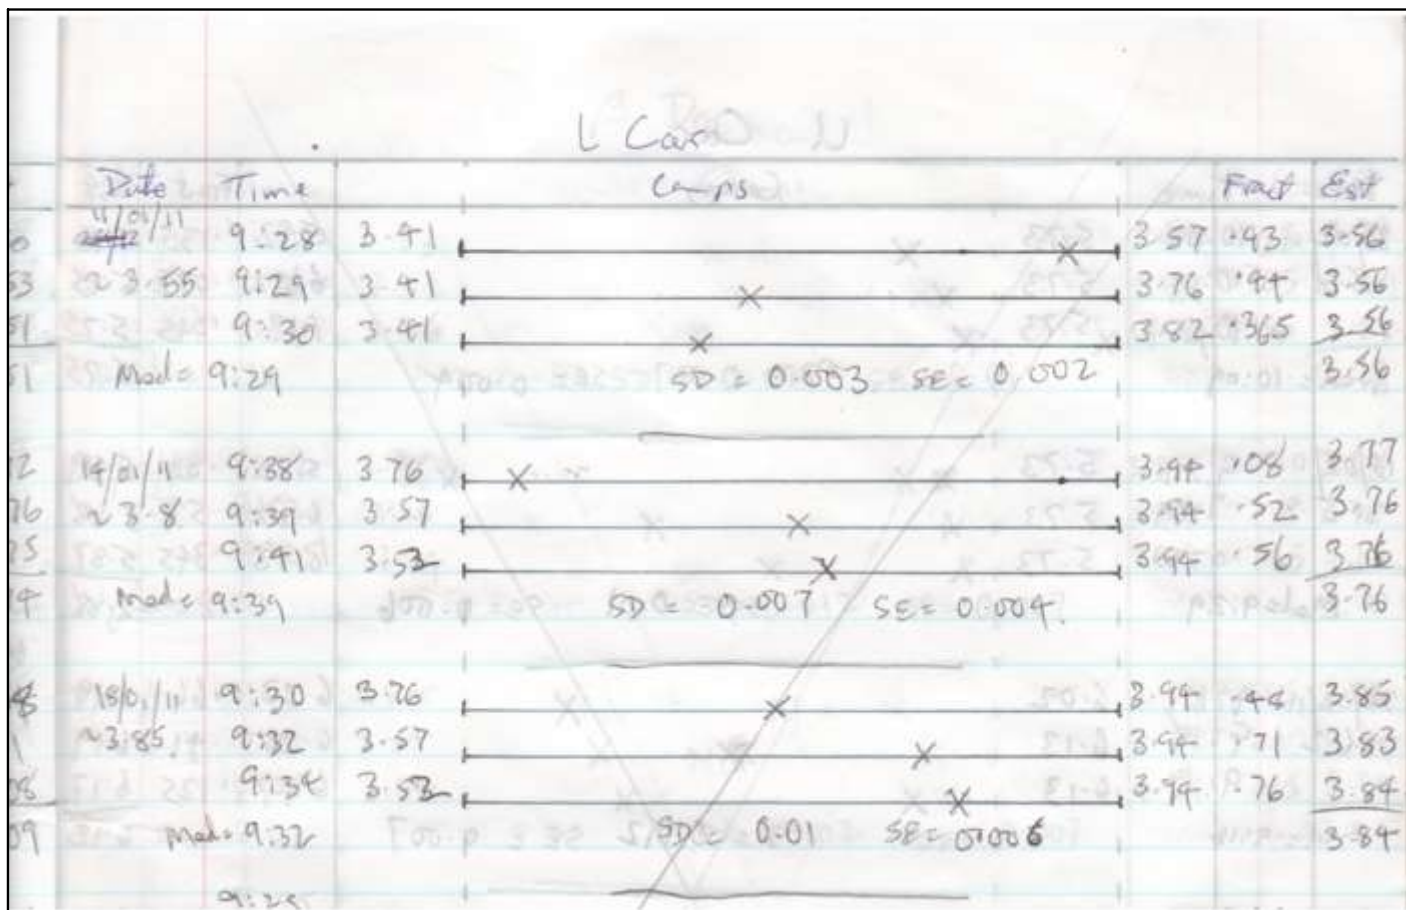 L Car
Date Time Comps Fract Est
11/01/11 9:28 3.41 3.57 .93 3.56
~3.55 9:29 3.41 3.76 .44 3.56
9:30 3.41 3.82 .365 3.56
Med = 9:29 SD = 0.003 SE = 0.002 3.56
14/01/11 9:38 3.76 3.94 .08 3.77
~3.8 9:39 3.57 3.94 .52 3.76
9:41 3.53 3.94 .56 3.76
Med = 9:39 SD = 0.007 SE = 0.004 3.76
18/01/11 9:30 3.76 3.94 .48 3.85
~3.85 9:32 3.57 3.94 .71 3.83
9:34 3.53 3.94 .76 3.84
Med = 9:32 SD = 0.01 SE = 0.006 3.84